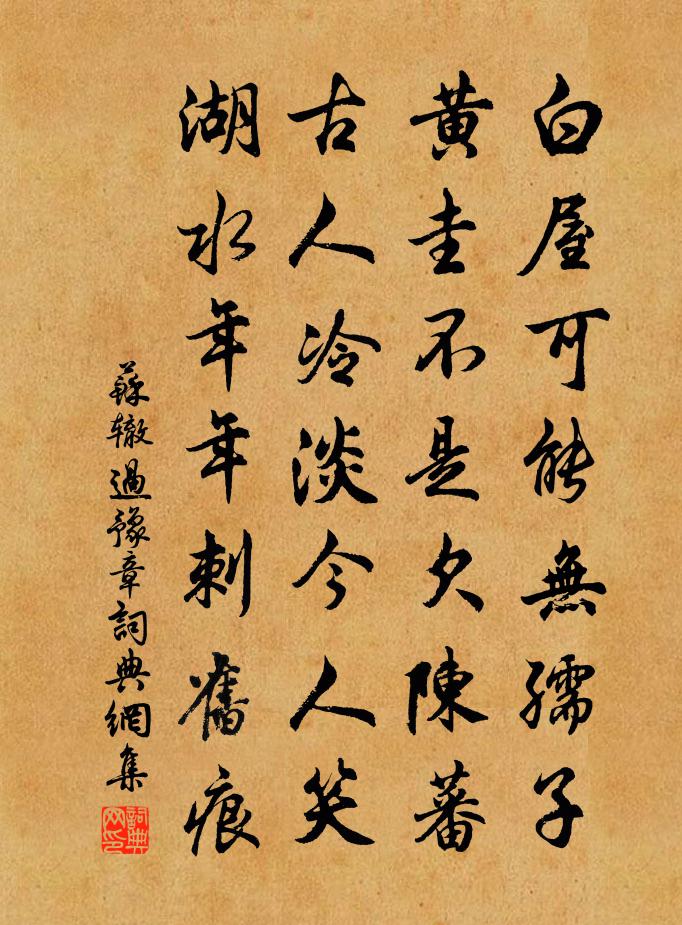 白屋可能無孺子
黄圭不是欠陳蕃
古人冷淡今人笑
湖水年年刺舊痕
蘇轍過豫章詞典網集
詞典网印